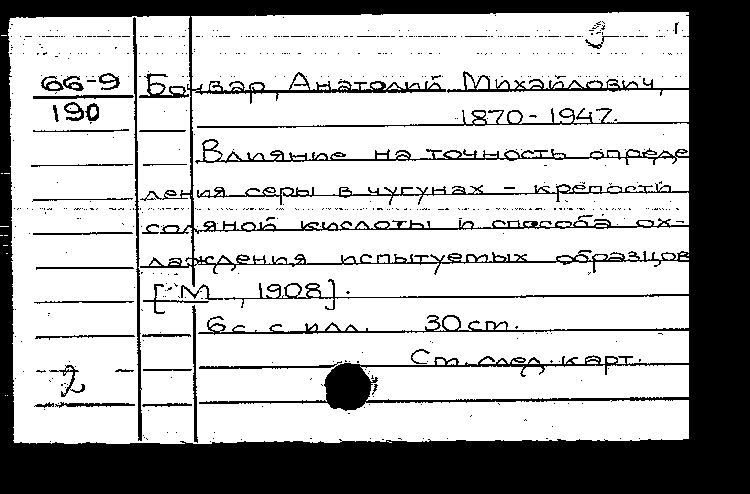 66-9 Бочвар, Анатолий Михайлович,
190 1870-1947.
Влияние на точность опреде
ления серы в чугунах - крепости
соляной кислоты и способа ох-
лаждения испытуемых образцов
[М , 1908].
6 с. с илл. 30 ст.
Ст. след. карт.
2